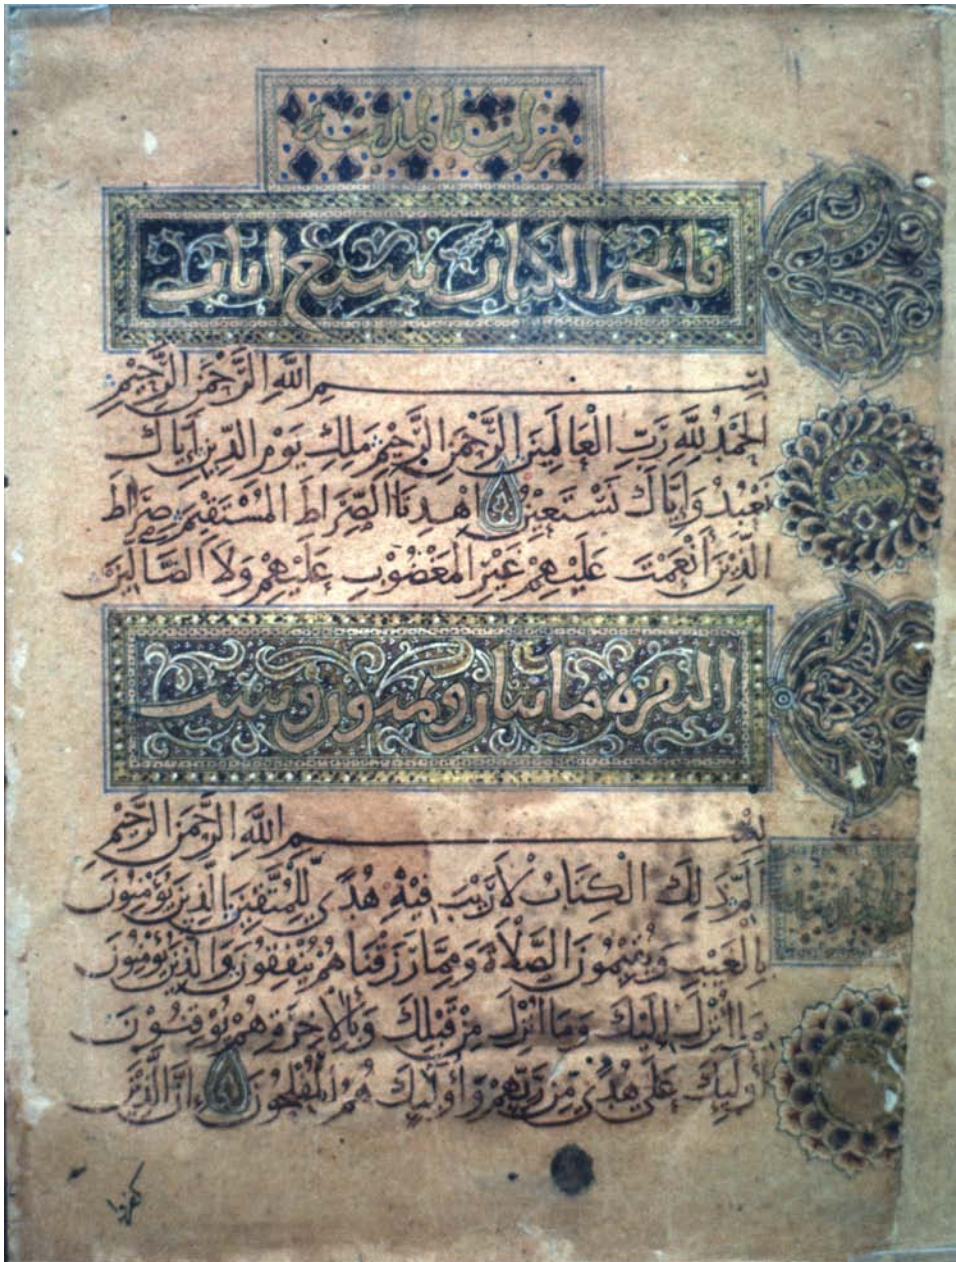 نزلت بالمدينة
فاتحة الكتاب سبع ايات
بِسْمِ اللَّهِ الرَّحْمَنِ الرَّحِيْمِ
الْحَمْدُ لِلَّهِ رَبِّ الْعَالَمِيْنَ الرَّحْمَنِ الرَّحِيْمِ مَلِكِ يَوْمِ الدِّيْنِ إِيَّاكَ
نَعْبُدُ وَإِيَّاكَ نَسْتَعِيْنُ اهْدِنَا الصِّرَاطَ الْمُسْتَقِيْمَ صِرَاطَ
الَّذِيْنَ أَنْعَمْتَ عَلَيْهِمْ غَيْرِ الْمَغْضُوْبِ عَلَيْهِمْ وَلَا الضَّالِّيْنَ
البقرة مايتان وثمنون وست
بِسْمِ اللَّهِ الرَّحْمَنِ الرَّحِيْمِ
الم ذَلِكَ الْكِتَابُ لَا رَيْبَ فِيْهِ هُدًى لِلْمُتَّقِيْنَ الَّذِيْنَ يُؤْمِنُوْنَ
بِالْغَيْبِ وَيُقِيْمُوْنَ الصَّلَاةَ وَمِمَّا رَزَقْنَاهُمْ يُنْفِقُوْنَ وَالَّذِيْنَ يُؤْمِنُوْنَ
بِمَا أُنْزِلَ إِلَيْكَ وَمَا أُنْزِلَ مِنْ قَبْلِكَ وَبِالْآخِرَةِ هُمْ يُوْقِنُوْنَ
أُولَئِكَ عَلَى هُدًى مِنْ رَبِّهِمْ وَأُولَئِكَ هُمُ الْمُفْلِحُوْنَ إِنَّ الَّذِيْنَ